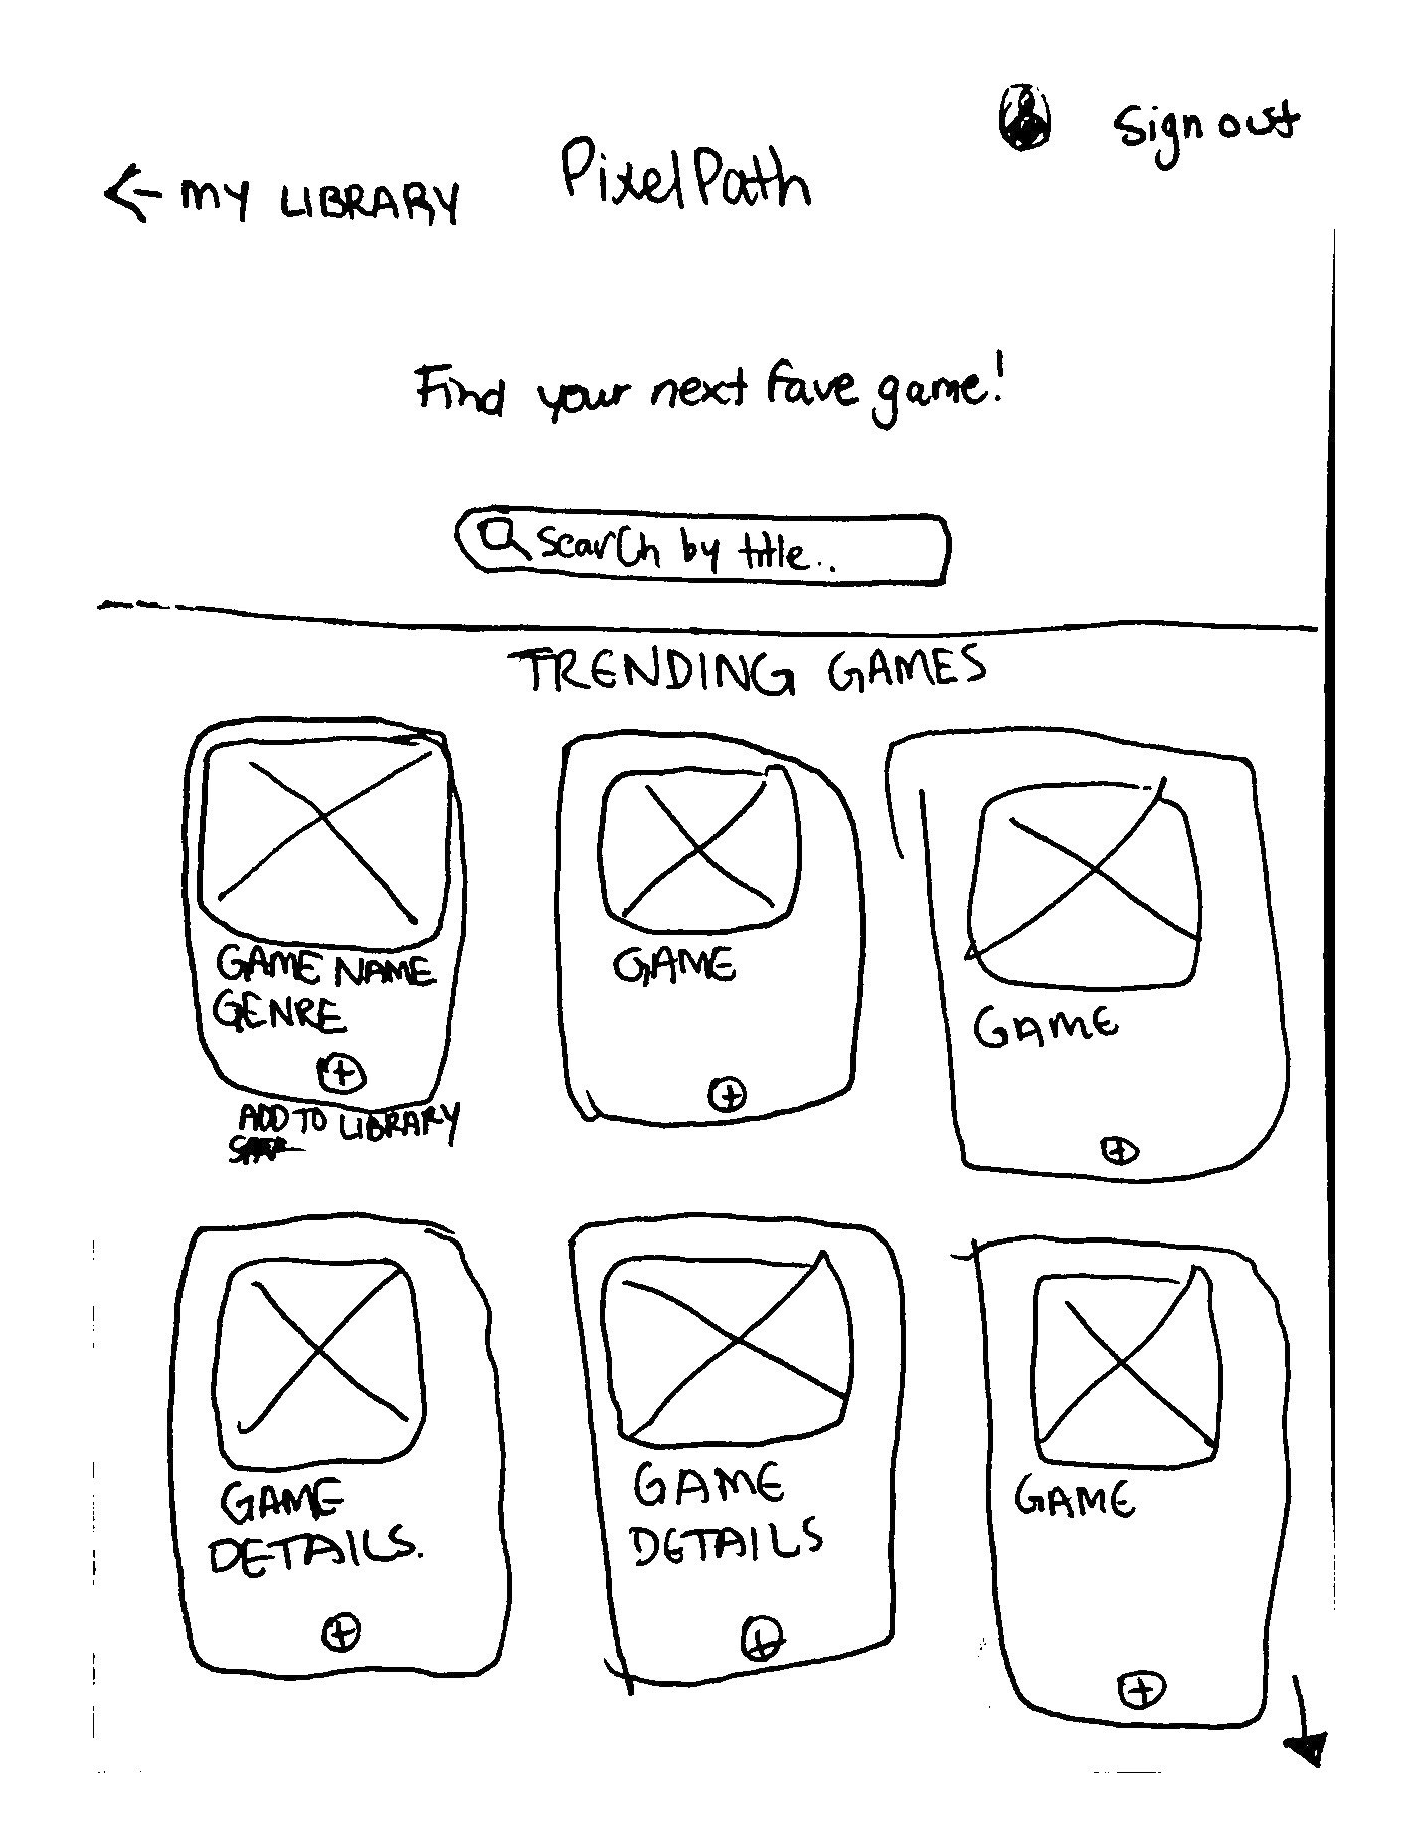 Sign out
← MY LIBRARY
PixelPath
Find your next fave game!
Search by title..
TRENDING GAMES
GAME NAME
GENRE
ADD TO LIBRARY
GAME
GAME
GAME
DETAILS.
GAME
DETAILS
GAME